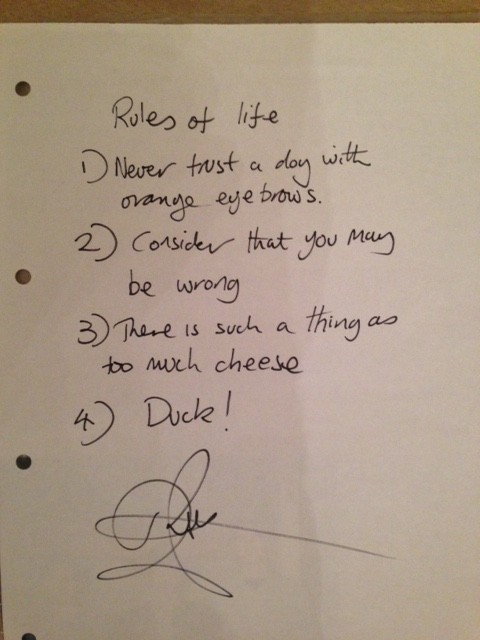 Rules of life
1) Never trust a dog with
orange eyebrows.
2) Consider that you may
be wrong
3) There is such a thing as
too much cheese
4) Duck!